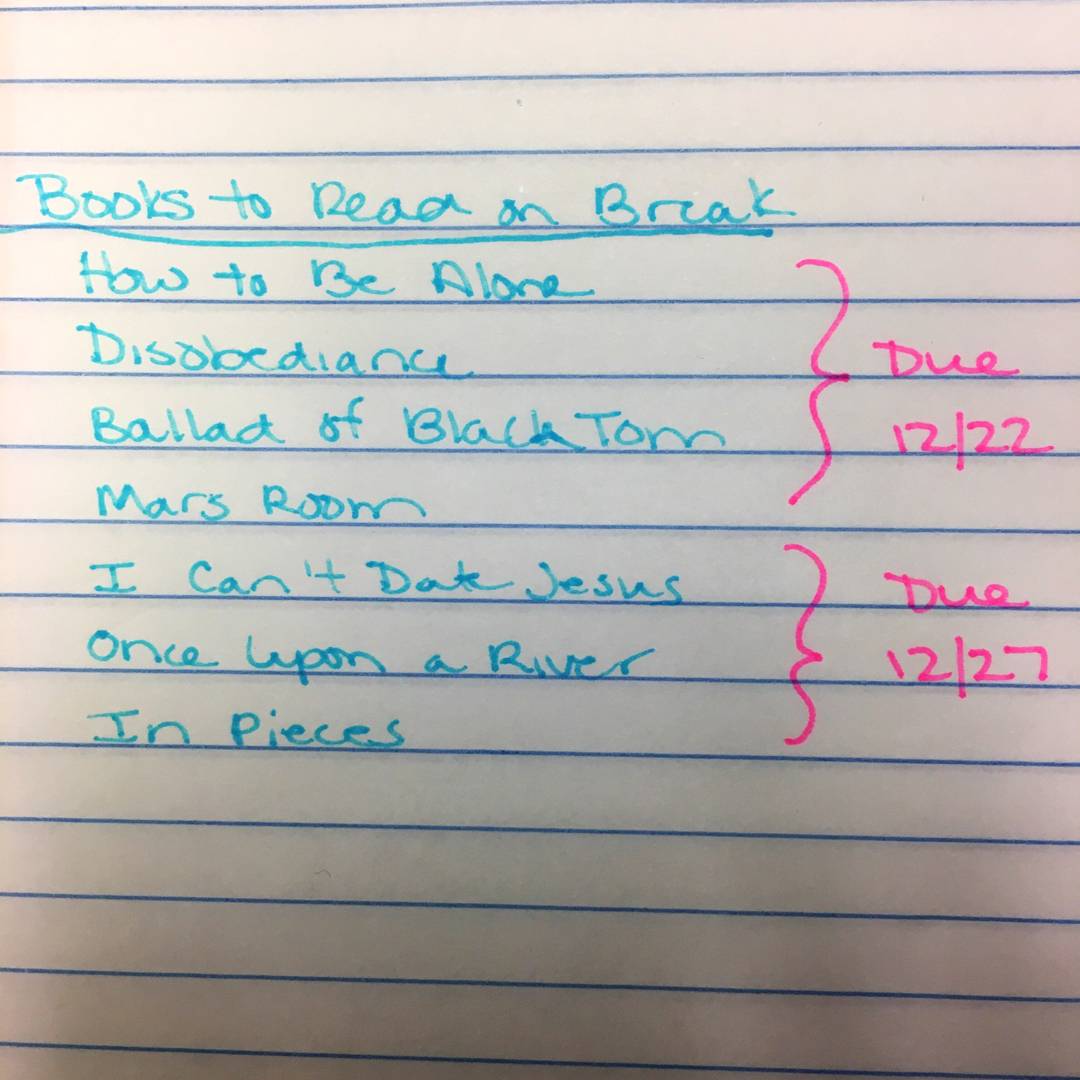 Books to Read on Break
How to Be Alone
Disobediance
Ballad of Black Tom
Mars Room
Due
12/22
I Can't Date Jesus
Once Upon a River
In Pieces
Due
12/27